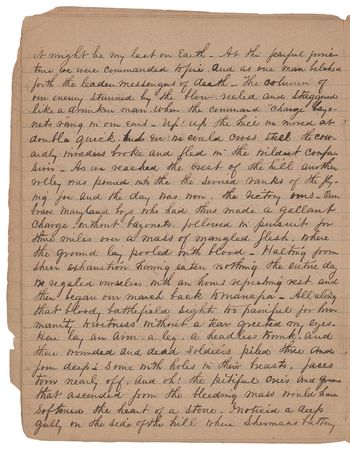 it might be my last on Earth - At the fearful junc
ture we were commanded to fire And as one man belched
forth the leaden messengers of death - The column of
our enemy stunned by the blow reeled and staggered
like a drunken man. When the command "Charge bayo-
nets rang in our ears - Up! Up the hill we moved at
double quick. but Ere we could cross steel the cow
ardly invaders broke and fled in the wildest confu
sion - As we reached the crest of the hill another
volley was poured into the the serried ranks of the fly-
ing foe and the day was won. The victory ours - Our
brave Maryland boys who had thus made a gallant
charge without bayonets followed in pursuit for
two miles over a mass of mangled flesh. Where
the ground lay pooled with blood - Halting from
sheer exhaustion having eaten nothing the entire day
we regaled ourselves with an hours refreshing rest and
then began our march back to Manassa - All along
that bloody battlefield sights too painful for hu
manity to witness without a tear greeted our eyes.
Here lay an arm a leg. a headless trunk. and
there wounded and dead soldiers piled three and
four deep. Some with holes in their breasts. faces
torn nearly off. And oh! the pitiful cries and groans
that ascended from the bleeding mass would have
softened the heart of a stone - Noticed a deep
gully on the side of the hill where Shermans battery